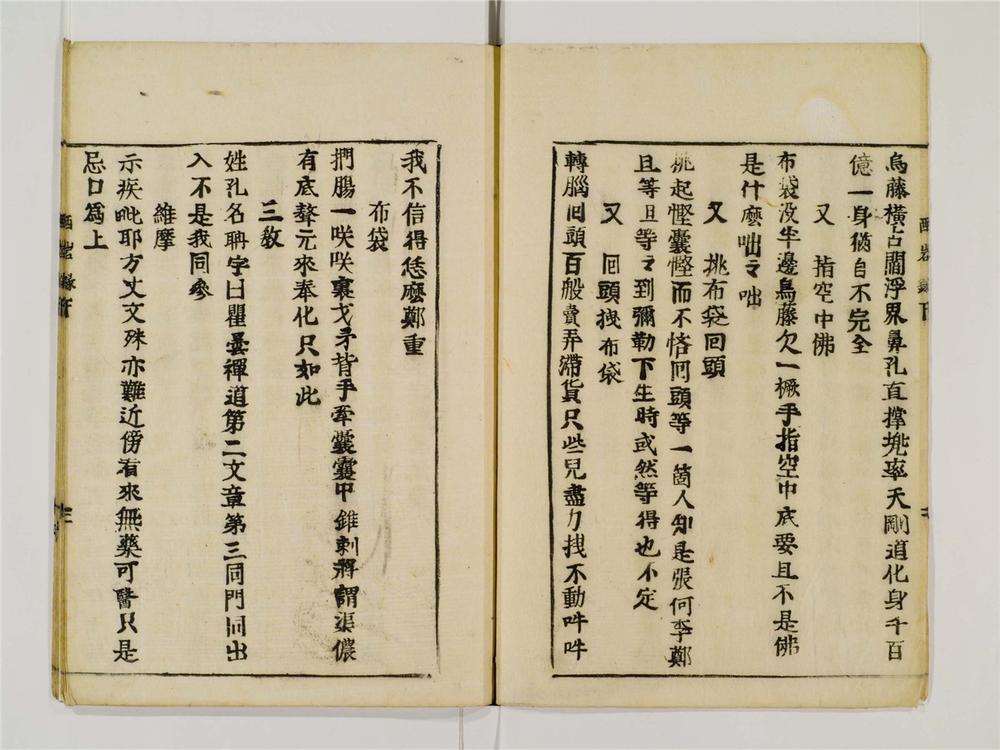 烏藤橫占閻浮界鼻孔直撑兠率天剛道化身千百
億一身猶自不完全
又　指空中佛
布袋没半邊烏藤欠一橛手指空中底要且不是佛
是什麽咄々咄
又　挑布袋回頭
挑起慳囊慳而不悋囘頭等一箇人知是張何李鄭
且等且等々到彌勒下生時或然等得也不定
又　囘頭拽布袋
轉腦囘頭百般賣弄滯貨只些兒盡力拽不動吽吽
我不信得恁麽鄭重
布袋
捫腸一咲咲裏戈矛背手牽囊囊中錐刺將謂渠儂
有底螯元來奉化只如此
三教
姓孔名聃字曰瞿曇禪道第二文章第三同門同出
入不是我同參
維摩
示疾毗耶方丈文殊亦難近傍有來無藥可醫只是
忌口爲上
西岩録下